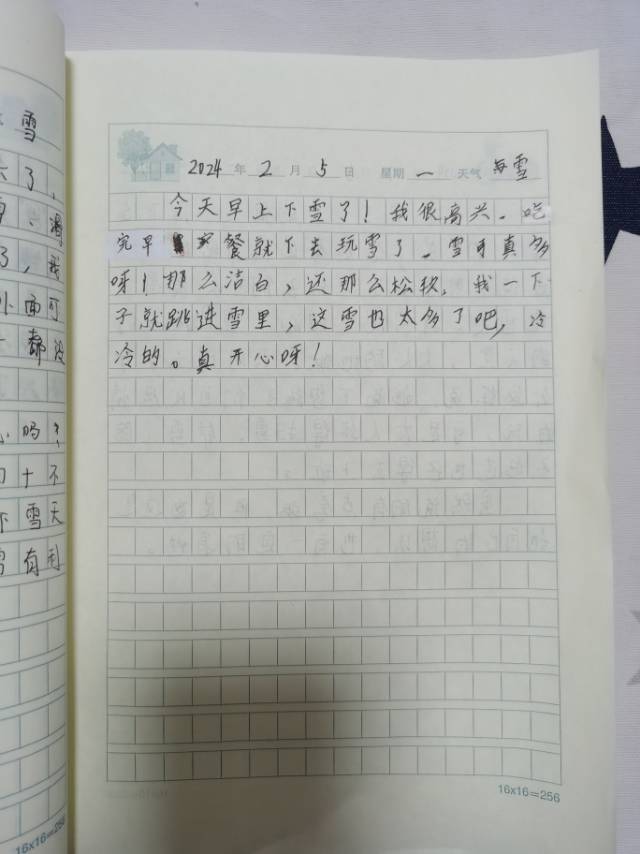 雪
了，
了，我
外面可
都没
吗？
十不
下雪天
雪有用
16x16=256
2024年2月5日 星期一 天气 雪
今天早上下雪了！我很高兴。吃
完早餐就下去玩雪了。雪可真多
呀！那么洁白，还那么松软，我一下
子就跳进雪里，这雪也太多了吧，冷
冷的。真开心呀！
16x16=256